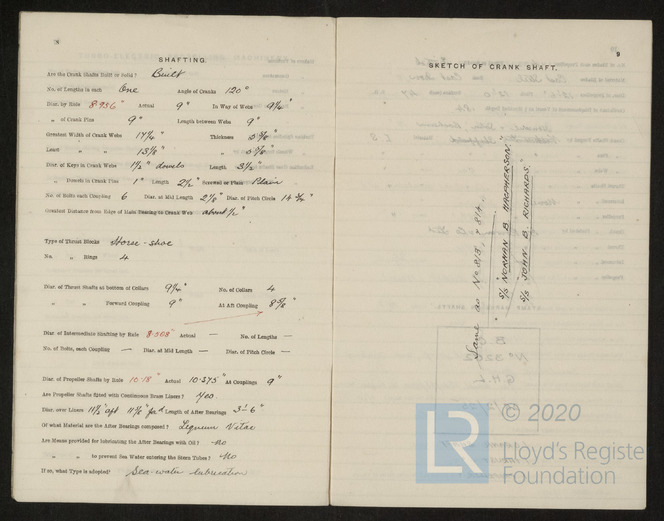 8
SHAFTING.
Are the Crank Shafts Built or Solid? Built
No. of Lengths in each One Angle of Cranks 120°
Diar. by Rule 8.956" Actual 9" In Way of Webs 9¼"
" of Crank Pins 9" Length between Webs 9"
Greatest Width of Crank Webs 17¼" Thickness 5⅝"
Least " " 13⅛" " 5⅝"
Diar. of Keys in Crank Webs 1½" dowels Length 3½"
" Dowels in Crank Pins 1" Length 2½" Screwed or Plain Plain
No. of Bolts each Coupling 6 Diar. at Mid Length 2⅛" Diar. of Pitch Circle 14¾"
Greatest Distance from Edge of Main Bearing to Crank Web about ½"
Type of Thrust Blocks Horse-shoe
No. " Rings 4
Diar. of Thrust Shafts at bottom of Collars 9¼" No. of Collars 4
" " Forward Coupling 9" At Aft Coupling 8⅝"
Diar. of Intermediate Shafting by Rule 8.508" Actual — No. of Lengths —
No. of Bolts, each Coupling — Diar. at Mid Length — Diar. of Pitch Circle —
Diar. of Propeller Shafts by Rule 10.18" Actual 10.375" At Couplings 9"
Are Propeller Shafts fitted with Continuous Brass Liners? Yes.
Diar. over Liners 11½" aft 11⅝" for'd Length of After Bearings 3'-6"
Of what Material are the After Bearings composed? Lignum Vitae
Are Means provided for lubricating the After Bearings with Oil? No
" " to prevent Sea Water entering the Stern Tubes? No
If so, what Type is adopted? Sea-water lubrication
9
SKETCH OF CRANK SHAFT.
Same as Nos 813, & 814.
S/S "NORMAN B. MACPHERSON"
S/S "JOHN B. RICHARDS."
© 2020
LR
Lloyd's Register
Foundation